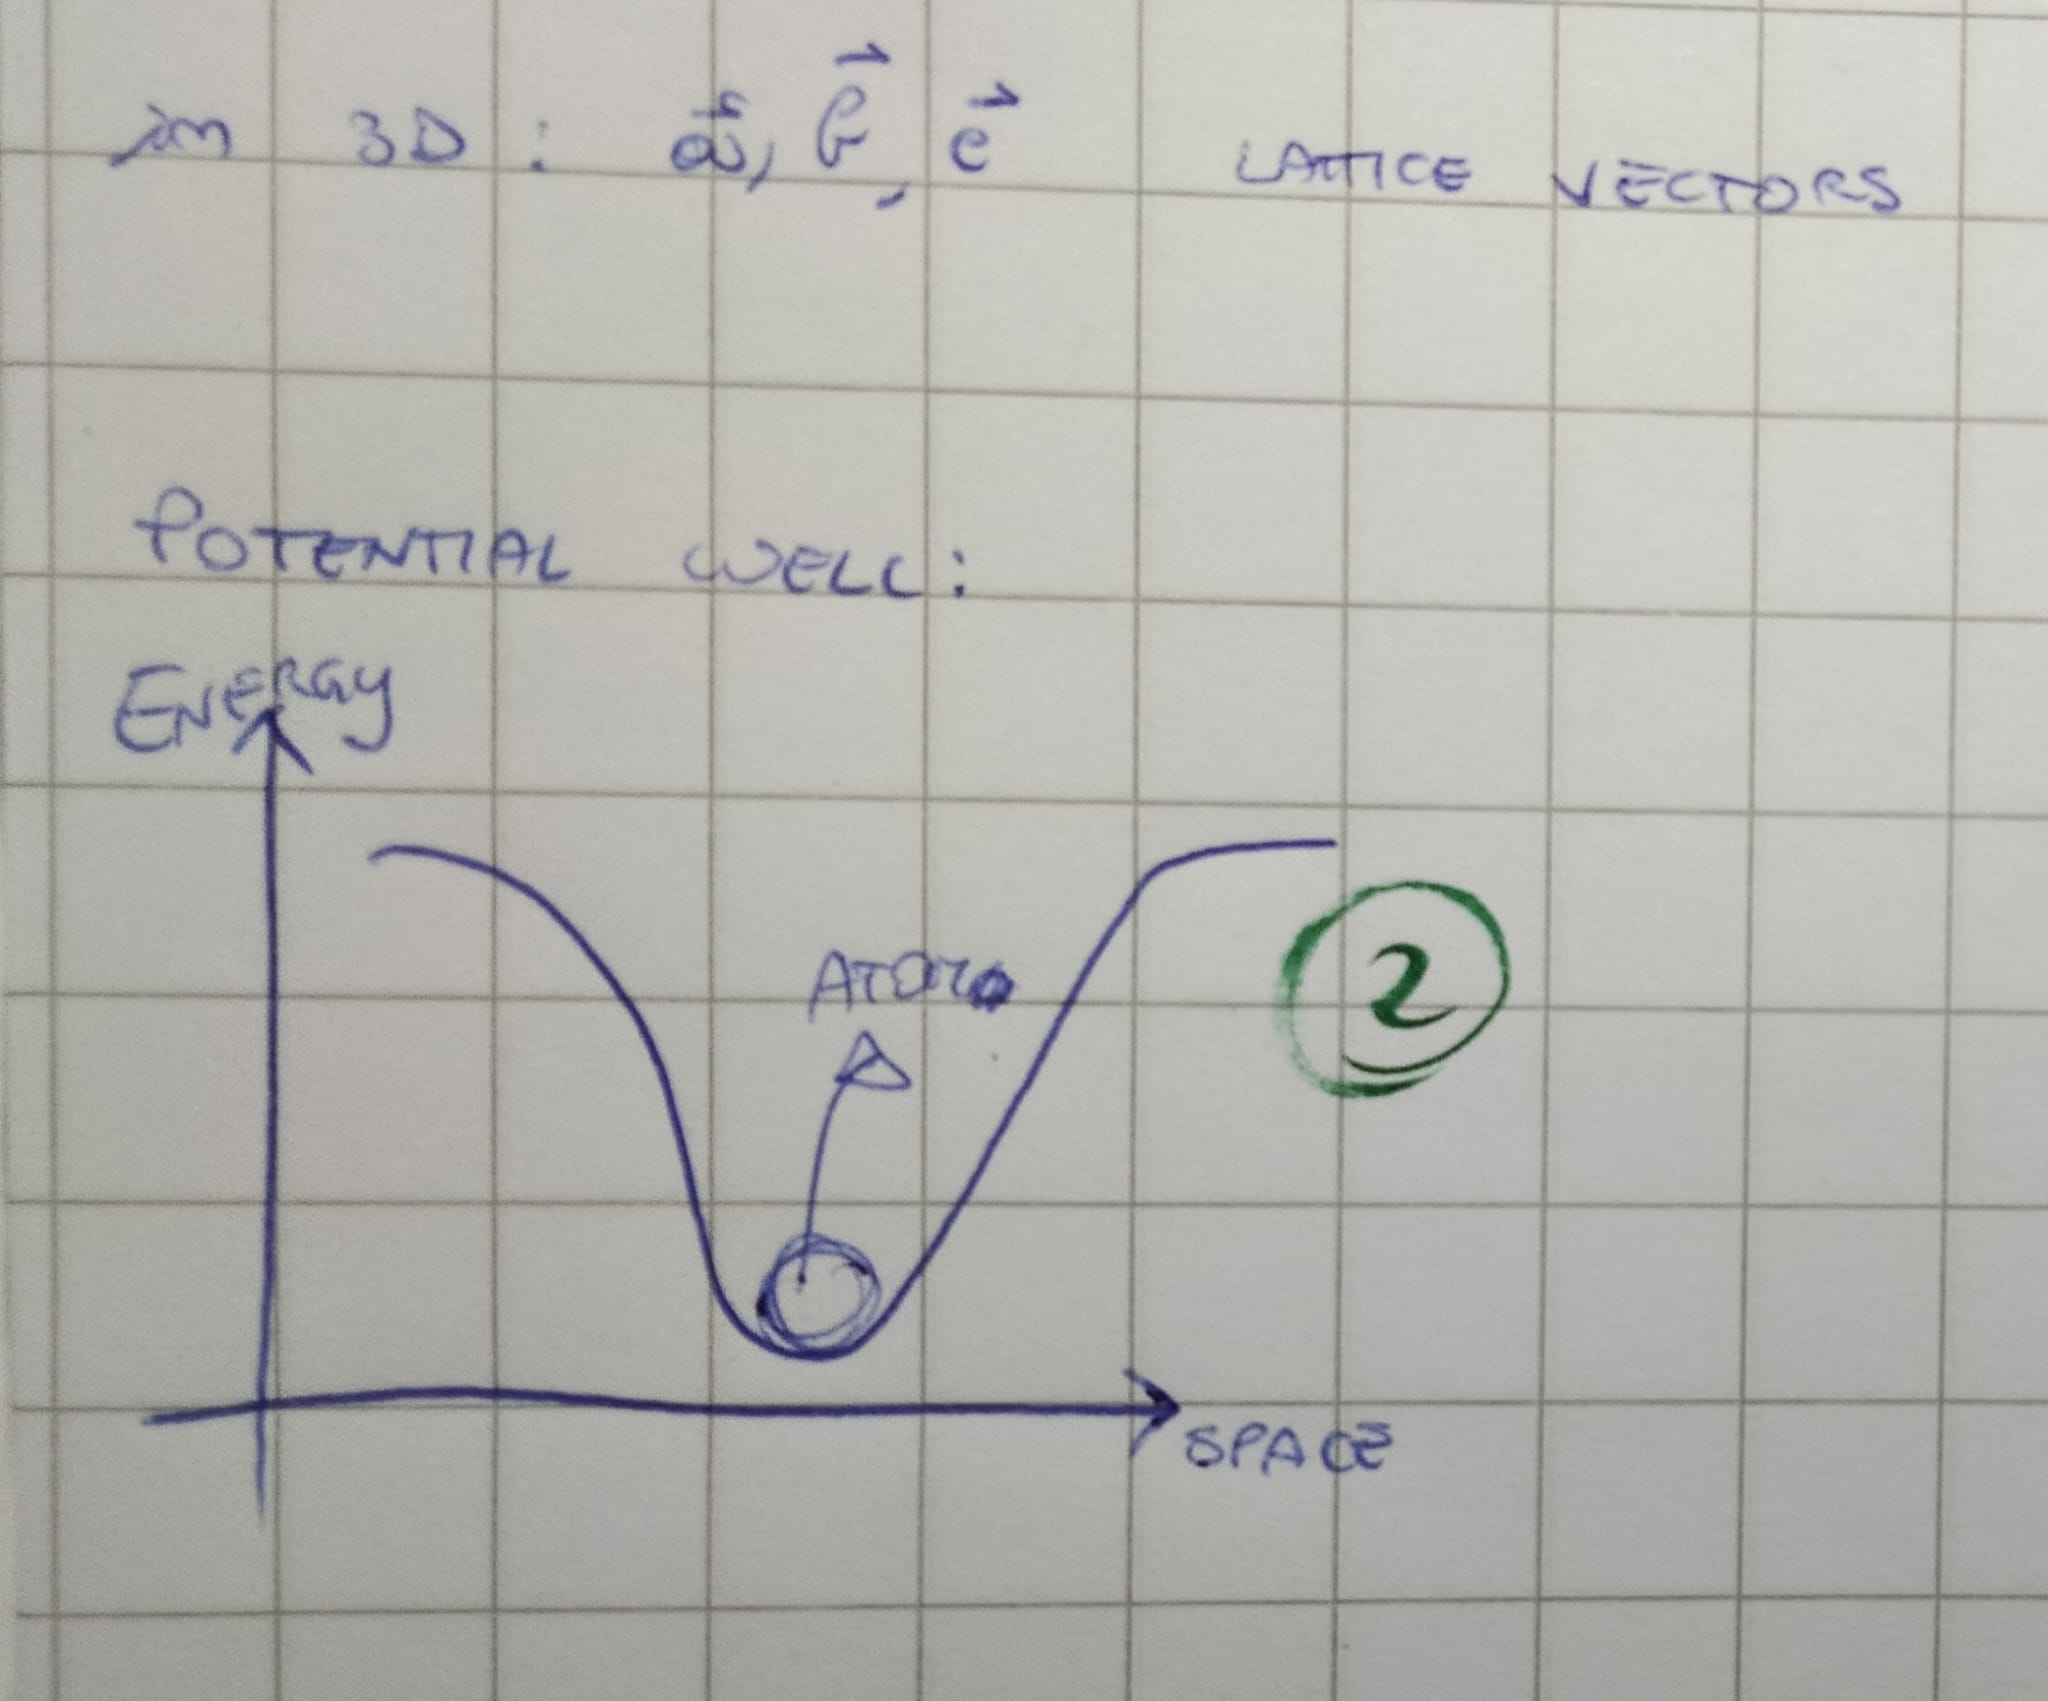 in 3D: a⃗, b⃗, c⃗ LATTICE VECTORS
POTENTIAL WELL:
ENERGY
ATOM
2
SPACE